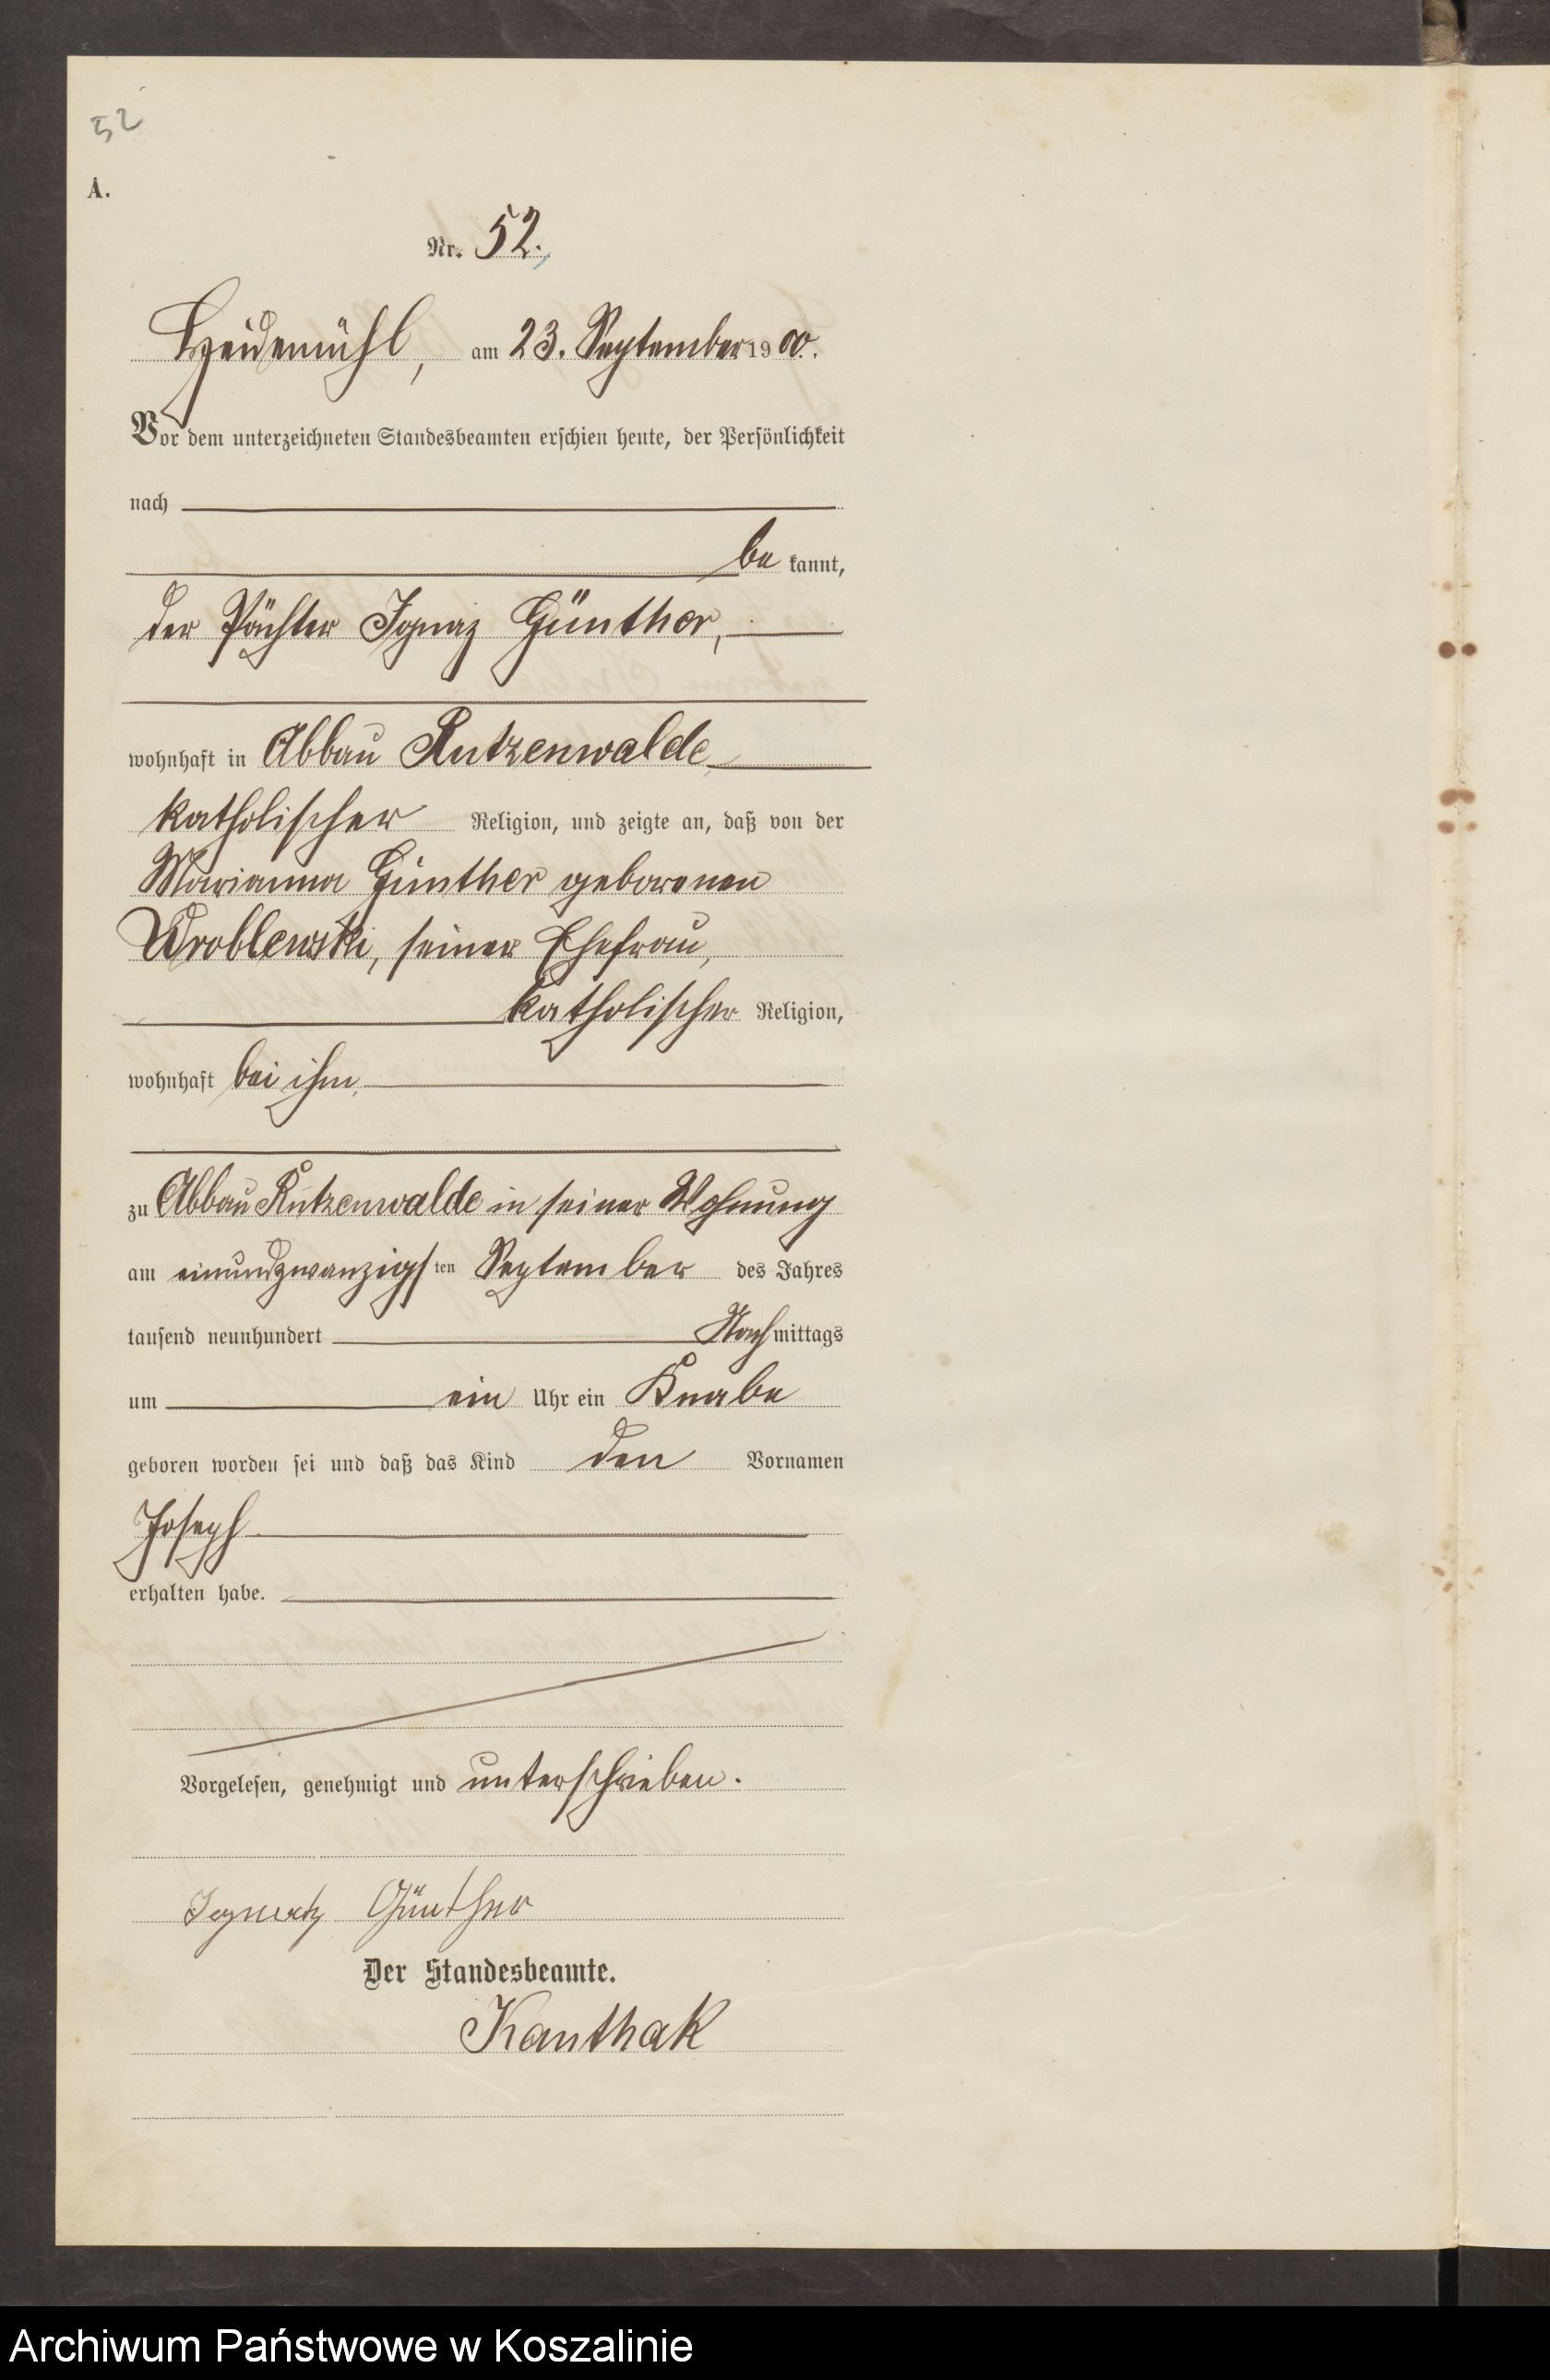 52
A.
Nr. 52.
Heidemühl, am 23. September 1900.
Vor dem unterzeichneten Standesbeamten erschien heute, der Persönlichkeit
nach
be kannt,
der Pächter Ignaz Günther,
wohnhaft in Abbau Rutzenwalde,
katholischer Religion, und zeigte an, daß von der
Marianna Günther geborenen
Wroblewski, seiner Ehefrau,
katholischer Religion,
wohnhaft bei ihm,
zu Abbau Rutzenwalde in seiner Wohnung
am einundzwanzigsten September des Jahres
tausend neunhundert Nachmittags
um ein Uhr ein Knabe
geboren worden sei und daß das Kind den Vornamen
Joseph
erhalten habe.
Vorgelesen, genehmigt und unterschrieben.
Ignatz Günther
Der Standesbeamte.
Kanthak
Archiwum Państwowe w Koszalinie